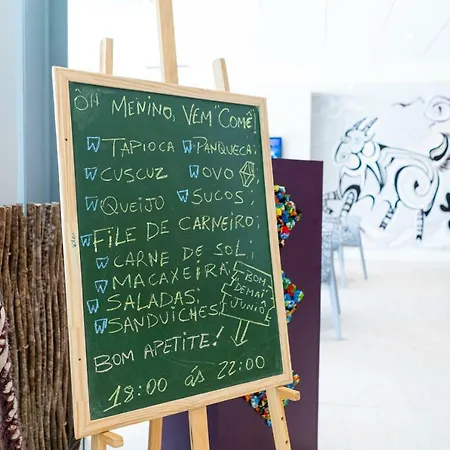 ÔH MENINO, VEM "COMÊ!
TAPIOCA PANQUECA;
CUSCUZ OVO
QUEIJO SUCOS;
FILE DE CARNEIRO;
CARNE DE SOL;
MACAXEIRA;
SALADAS;
SANDUICHES
BOM
DEMAI
JUNIO
BOM APETITE!
18:00 ás 22:00